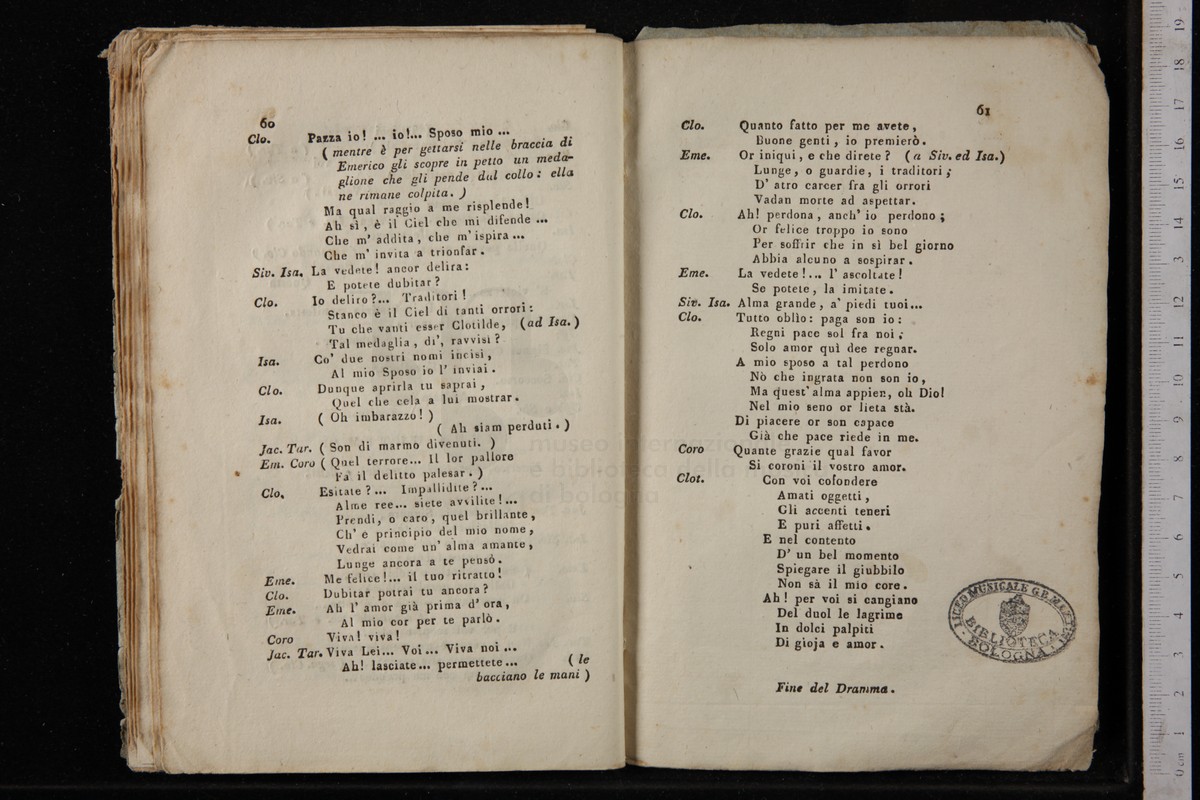 60
Clo. Pazza io! ... io!... Sposo mio ...
( mentre è per gettarsi nelle braccia di
Emerico gli scopre in petto un meda-
glione che gli pende dal collo: ella
ne rimane colpita. )
Ma qual raggio a me risplende!
Ah sì, è il Ciel che mi difende ...
Che m' addita, che m' ispira ...
Che m' invita a trionfar.
Siv. Isa. La vedete! ancor delira:
E potete dubitar?
Clo. Io deliro?... Traditori!
Stanco è il Ciel di tanti orrori:
Tu che vanti esser Clotilde, (ad Isa.)
Tal medaglia, di', ravvisi?
Isa. Co' due nostri nomi incisi,
Al mio Sposo io l' inviai.
Clo. Dunque aprirla tu saprai,
Quel che cela a lui mostrar.
Isa. ( Oh imbarazzo! )
( Ah siam perduti. )
Jac. Tar. ( Son di marmo divenuti. )
Em. Coro ( Quel terrore... Il lor pallore
Fa il delitto palesar. )
Clo. Esitate?... Impallidite?...
Alme ree... siete avvilite!...
Prendi, o caro, quel brillante,
Ch' è principio del mio nome,
Vedrai come un' alma amante,
Lunge ancora a te pensò.
Eme. Me felice!... il tuo ritratto!
Clo. Dubitar potrai tu ancora?
Eme. Ah l' amor già prima d' ora,
Al mio cor per te parlò.
Coro Viva! viva!
Jac. Tar. Viva Lei... Voi... Viva noi ...
Ah! lasciate... permettete... ( le
bacciano le mani )
61
Clo. Quanto fatto per me avete,
Buone genti, io premierò.
Eme. Or iniqui, e che direte? (a Siv. ed Isa.)
Lunge, o guardie, i traditori;
D' atro carcer fra gli orrori
Vadan morte ad aspettar.
Clo. Ah! perdona, anch' io perdono;
Or felice troppo io sono
Per soffrir che in sì bel giorno
Abbia alcuno a sospirar.
Eme. La vedete!... l' ascoltate!
Se potete, la imitate.
Siv. Isa. Alma grande, a' piedi tuoi...
Clo. Tutto oblìo: paga son io:
Regni pace sol fra noi;
Solo amor quì dee regnar.
A mio sposo a tal perdono
Nò che ingrata non son io,
Ma quest' alma appien, oh Dio!
Nel mio seno or lieta stà.
Di piacere or son capace
Già che pace riede in me.
Coro Quante grazie qual favor
Si coroni il vostro amor.
Clot. Con voi cofondere
Amati oggetti,
Gli accenti teneri
E puri affetti.
E nel contento
D' un bel momento
Spiegare il giubbilo
Non sà il mio core.
Ah! per voi si cangiano
Del duol le lagrime
In dolci palpiti
Di gioja e amor.
Fine del Dramma.
LICEO MUSICALE G.B. MARTINI
BIBLIOTECA
BOLOGNA
museo internazionale
e biblioteca della musica
di bologna
0 cm 1 2 3 4 5 6 7 8 9 10 11 12 13 14 15 16 17 18 19